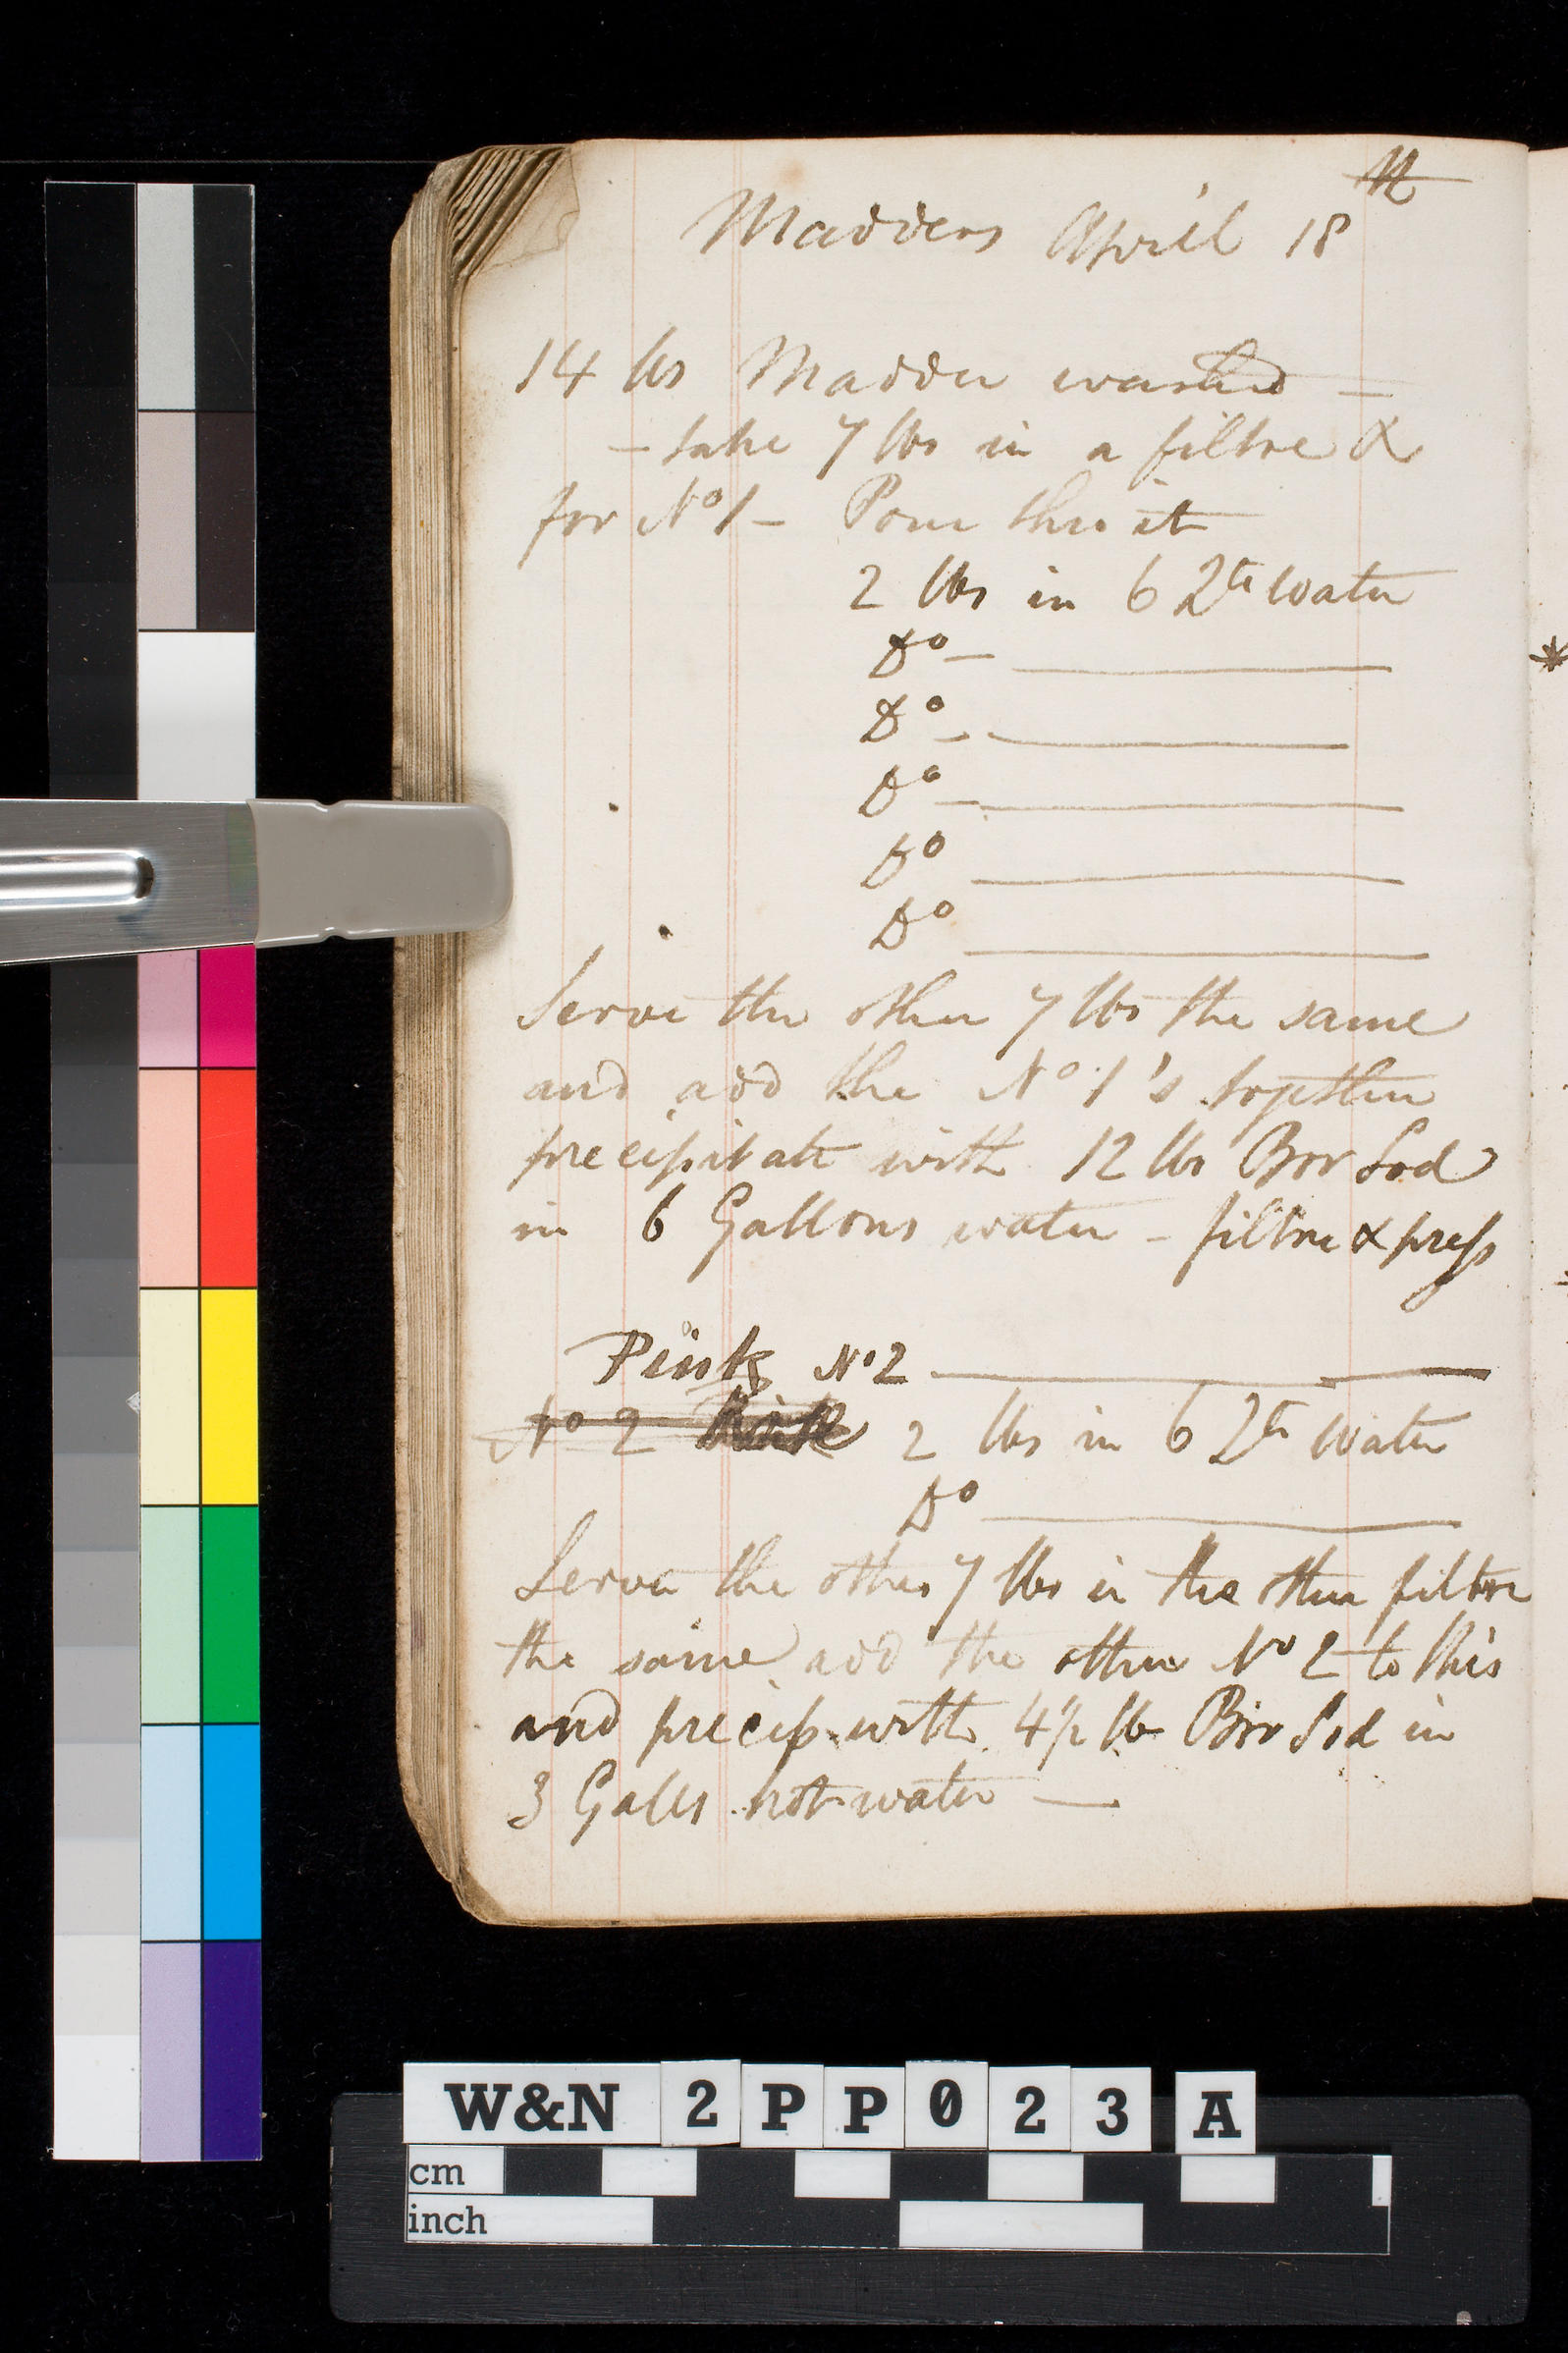 Madders April 18th
14 lbs Madder washed —
— take 7 lbs in a filtre &
for No 1 — Pour thro it
2 lbs in 6 Qts water
Do — ————
Do — ————
Do — ————
Do ————
Do ————
Serve the other 7 lbs the same
and add the No 1's together
precipitate with 12 lbs Bor Sod
in 6 Gallons water – filtre & press
Pink No 2 ————
No 2 2 lbs in 6 Qts water
Do ————
Serve the other 7 lbs in the other filtre
the same add the other No 2 to this
and precip. with 4 1/2 lb Bor Sod in
3 Galls hot water —
W&N 2PP023 A
cm
inch